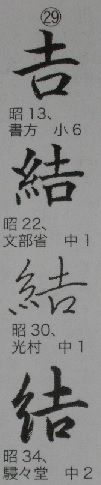 ㉙
吉
昭13、
書方 小6
結
昭22、
文部省 中1
結
昭30、
光村 中1
結
昭34、
駸々堂 中2